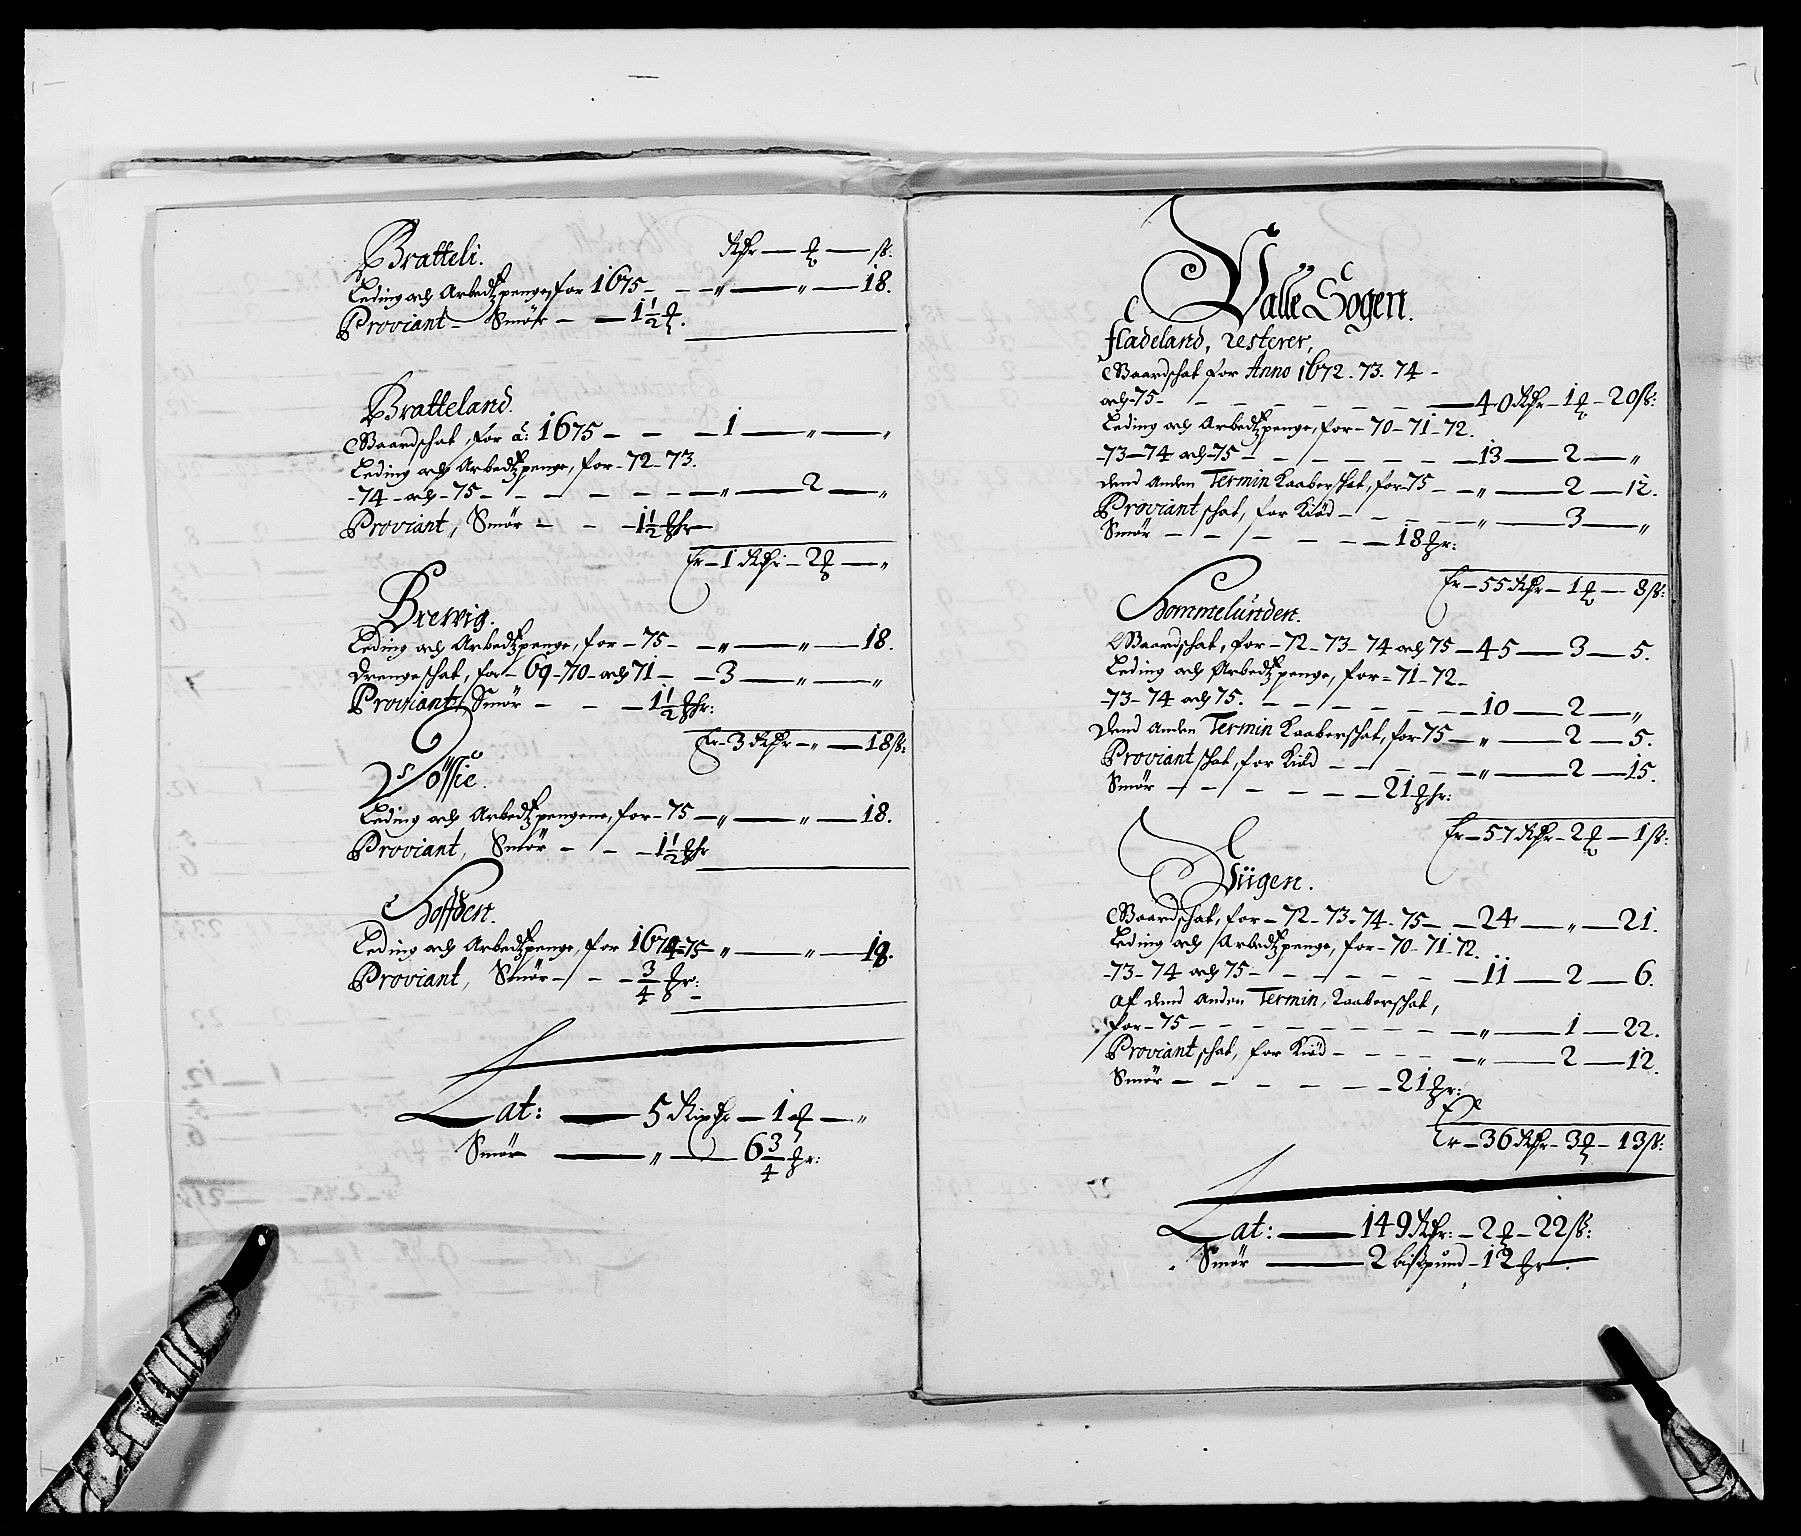 Bratteli. Rdr — ȹ — ß.
Leding och Arbedtzpenge, for 1675 — „ — „ — 18.
Proviant — Smör — 1½ ℔.
Bratteland.
Gaardschat, for a: 1675 — 1 — „ — „
Leding och Arbedtzpenge, for - 72 - 73.
- 74 - och - 75 — „ — 2 — „
Proviant, Smör — 1½ ℔r
Er — 1 Rdr — 2 ȹ — „
Brewig.
Leding och Arbedtzpenge, for - 75 — „ — „ — 18.
Drengeschat, for - 69 - 70 - och 71 — 3 — „ — „
Proviant, Smör — 1½ ℔r:
Er — 3 Rdr — „ — 18 ß:
Leding och Arbedtzpengene, for - 75 — „ — „ — 18.
Proviant, Smör — 1½ ℔r
Hoffden.
Leding och Arbedtzpenge, for 1674 - 75 — „ — „ — 18.
Proviant, Smör — ¾ ℔r:
Lat: — 5 Rixdr — 1 ȹ — „
Smör — „ — 6¾ ℔r:
Valle Sogen.
fladeland, resterer,
Gaardschat for Anno 1672. 73. 74 -
och - 75 — 40 Rdr — 1 ȹ — 20 ß:
Leding och Arbedtzpenge, for - 70 - 71 - 72.
- 73 - 74 och - 75 — 13 — 2 — „
dend Anden Termin Kaaberschat, for - 75 — „ — 2 — 12.
Proviant schat, for Kiöd — „ — 3 — „
Smör — 18 ℔r:
Er — 55 Rdr — 1 ȹ — 8 ß:
Hommelunden.
Gaardschat, for - 72 - 73 - 74 och 75 — 45 — 3 — 5.
Leding och Arbedtzpenge, for - 71 - 72 -
- 73 - 74 och 75. — 10 — 2 — „
Dend Anden Termin Kaaberschat, for 75 — „ — 2 — 5.
Proviant schat, for Kiöd — „ — 2 — 15.
Smör — 21 ℔r:
Er — 57 Rdr — 2 ȹ — 1 ß:
Gaardschat, for - 72 - 73 - 74 - 75 — 24 — „ — 21.
Leding och Arbedtzpenge, for - 70 - 71 - 72.
- 73 - 74 och 75 — 11 — 2 — 6.
Af dend Anden Termin, Kaaberschat,
for - 75 — „ — 1 — 22.
Proviant schat, for Kiöd — „ — 2 — 12.
Smör — 21 ℔r:
Er — 36 Rdr — 3 ȹ — 13 ß:
Lat: — 149 Rdr: — 2 ȹ — 22 ß:
Smör — 2 bißpund — 12 ℔r